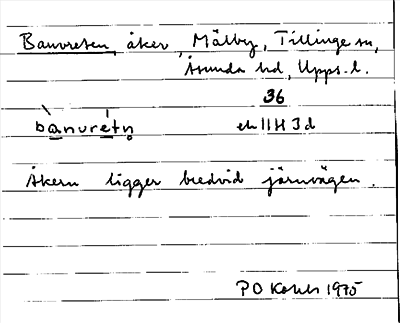 Banvreten, åker, Mälby, Tillinge sn,
Åsunda hd, Upps. l.
36
bànvrétn̥ ek 11H 3d
Åkern ligger bredvid järnvägen.
P O 1975